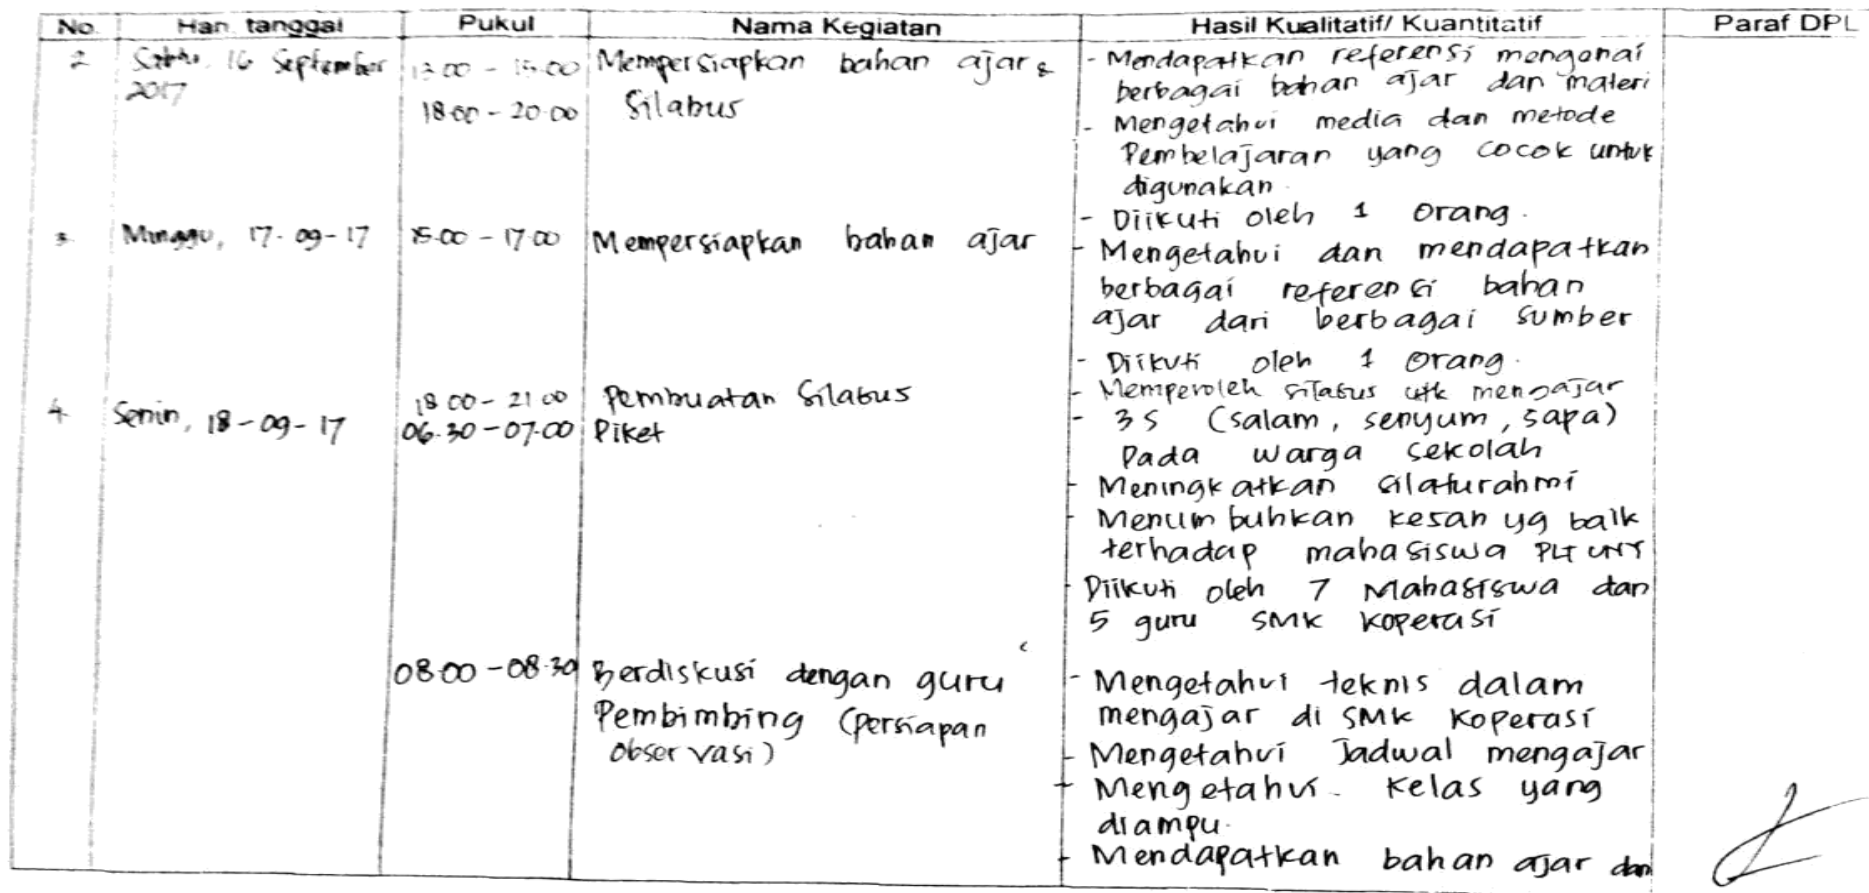 No. Hari, tanggal Pukul Nama Kegiatan Hasil Kualitatif/ Kuantitatif Paraf DPL
2 Sabtu, 16 September 13.00 - 15.00 Mempersiapkan bahan ajar & - Mendapatkan referensi mengenai
2017 berbagai bahan ajar dan materi
18.00 - 20.00 Silabus - Mengetahui media dan metode
Pembelajaran yang cocok untuk
digunakan.
- Diikuti oleh 1 orang.
3. Minggu, 17-09-17 15.00 - 17.00 Mempersiapkan bahan ajar - Mengetahui dan mendapatkan
berbagai referensi bahan
ajar dari berbagai sumber
- Diikuti oleh 1 orang.
18.00 - 21.00 Pembuatan Silabus - Memperoleh silabus utk mengajar
4. Senin, 18-09-17 06.30 - 07.00 Piket - 3S (salam, senyum, sapa)
Pada warga sekolah
- Meningkatkan silaturahmi
- Menumbuhkan kesan yg baik
terhadap mahasiswa PLT UNY
- Diikuti oleh 7 Mahasiswa dan
5 guru SMK Koperasi
08.00 - 08.30 Berdiskusi dengan guru - Mengetahui teknis dalam
Pembimbing (persiapan mengajar di SMK Koperasi
observasi) - Mengetahui Jadwal mengajar
- Mengetahui kelas yang
diampu.
- Mendapatkan bahan ajar dan